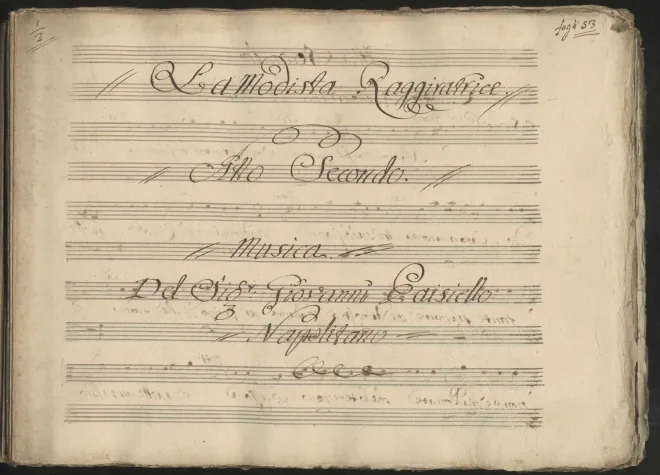 1/2
fog.i 53
La Modista Raggiratrice.
Atto Secondo.
Musica
Del Sig.r Giovanni Paisiello
Napolitano